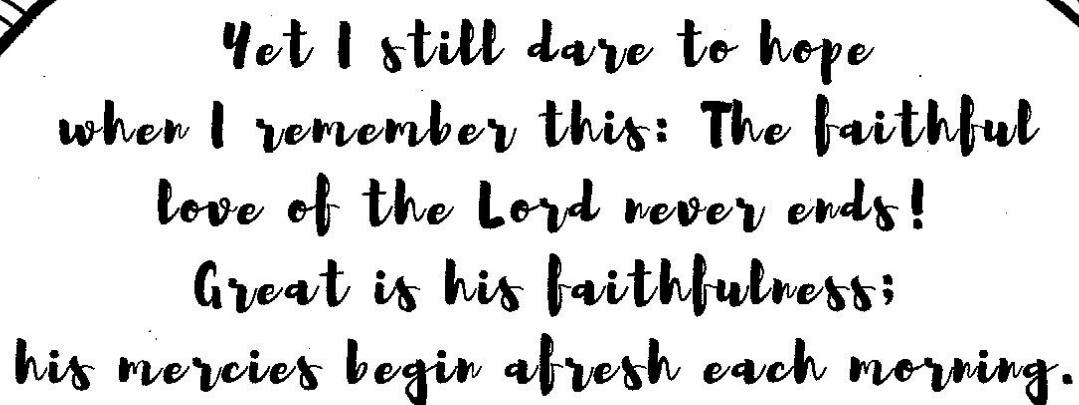 Yet I still dare to hope
when I remember this: The faithful
love of the Lord never ends!
Great is his faithfulness;
his mercies begin afresh each morning.